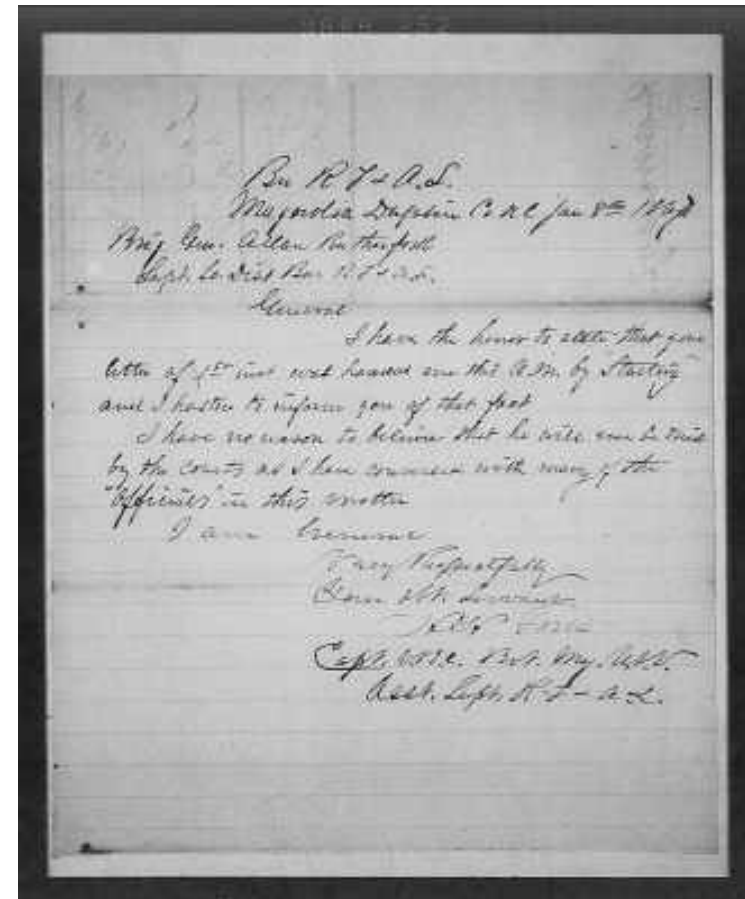 Bu R F & A.L.
Magnolia Duplin Co N C Jan 8th 1867
Brig Gen. Allan Rutherford
Supt. So. Dist Bur. R F & A.L.
General
I have the honor to state that your
letter of 1st inst was handed me this A.M. by
and I hasten to inform you of that fact
I have no reason to believe that he will ever be tried
by the courts as I have conversed with many of the
"Officials" in this matter
I am General
Very Respectfully
Your obt. servant
Capt. V.R.C. Bvt. Maj. U.S.V.
Asst. Supt. R F & A.L.